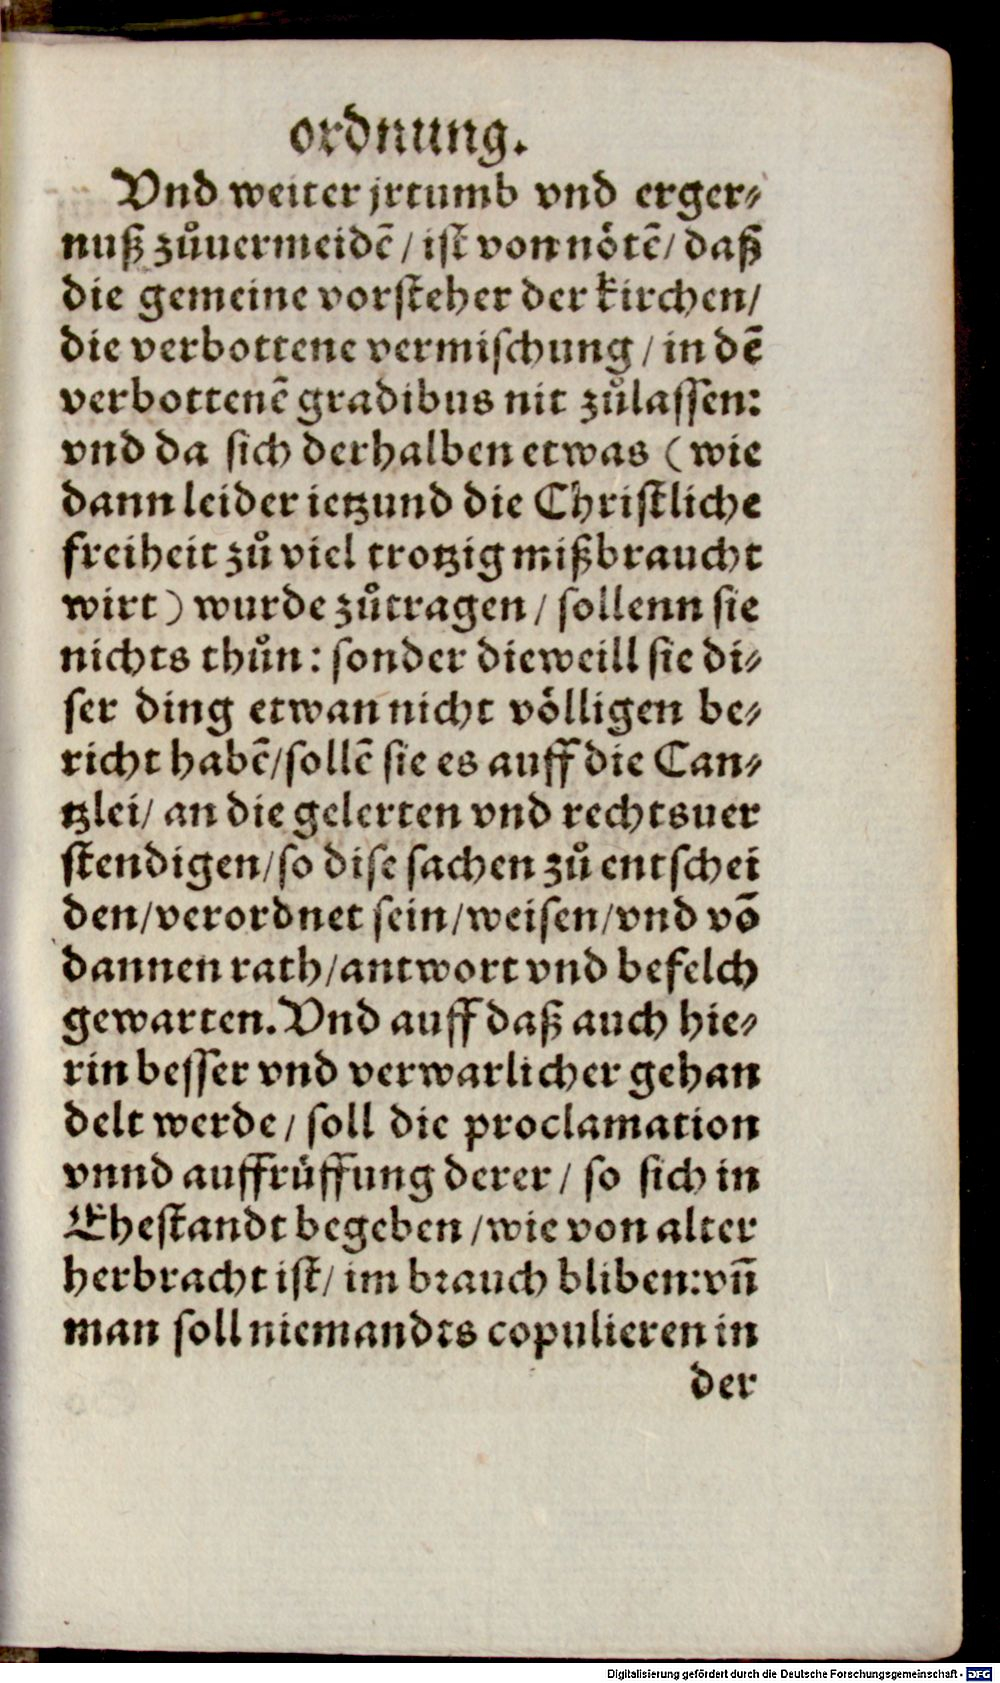 ordnung.
Vnd weiter jrtumb vnd erger⸗
nuß zůuermeidē / ist von nötē / daß
die gemeine vorsteher der kirchen /
die verbottene vermischung / in dē
verbottenē gradibus nit zůlassen:
vnd da sich derhalben etwas ( wie
dann leider ietzund die Christliche
freiheit zů viel trotzig mißbraucht
wirt ) wurde zůtragen / sollenn sie
nichts thůn : sonder dieweill sie di⸗
ser ding etwan nicht völligen be⸗
richt habē / sollē sie es auff die Can⸗
tzlei / an die gelerten vnd rechtsuer
stendigen / so dise sachen zů entschei
den / verordnet sein / weisen / vnd vō
dannen rath / antwort vnd befelch
gewarten. Vnd auff daß auch hie⸗
rin besser vnd verwarlicher gehan
delt werde / soll die proclamation
vnnd auffrüffung derer / so sich in
Ehestandt begeben / wie von alter
herbracht ist / im brauch bliben: vn̄
man soll niemandts copulieren in
der
Digitalisierung gefördert durch die Deutsche Forschungsgemeinschaft - DFG